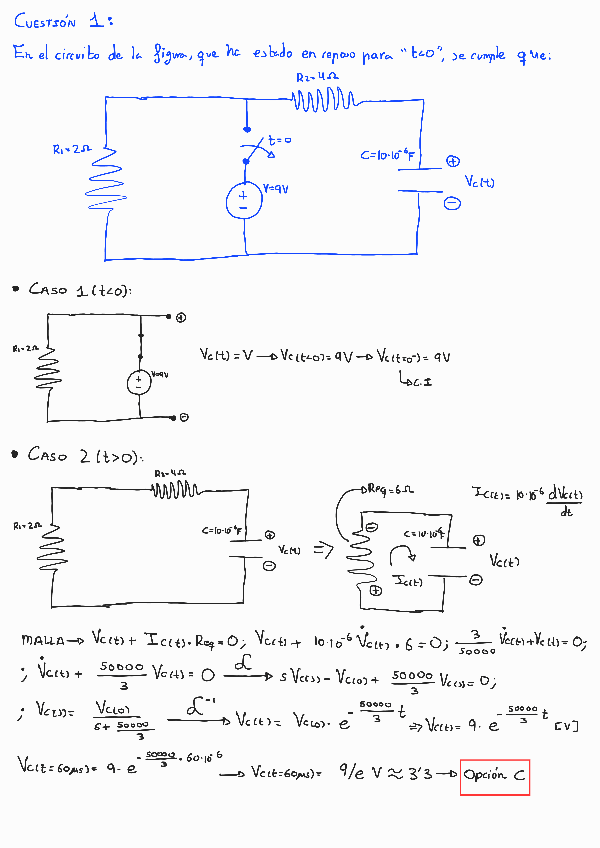 CUESTIÓN 1:
En el circuito de la figura, que ha estado en reposo para "t<0", se cumple que:
R2=4Ω
R1=2Ω
t=0
C=10·10⁻⁶F
+
Vc(t)
V=9V
+
-
-
• CASO 1 (t<0):
+
R1=2Ω
V=9V
+
-
-
Vc(t) = V → Vc(t<0) = 9V → Vc(t=0⁻) = 9V
↳ C.I
• CASO 2 (t>0):
R2=4Ω
R1=2Ω
C=10·10⁻⁶F
+
Vc(t)
-
=>
Req=6Ω
-
C=10·10⁻⁶F
+
Vc(t)
Ic(t)
-
+
Ic(t) = 10·10⁻⁶ dVc(t)/dt
MALLA → Vc(t) + Ic(t)·Req = 0; Vc(t) + 10·10⁻⁶ V̇c(t)·6 = 0; 3/50000 V̇c(t) + Vc(t) = 0;
; V̇c(t) + 50000/3 Vc(t) = 0 ℒ→ sVc(s) - Vc(0) + 50000/3 Vc(s) = 0;
; Vc(s) = Vc(0)/(s + 50000/3) ℒ⁻¹→ Vc(t) = Vc(0)·e^(-50000/3 t) => Vc(t) = 9·e^(-50000/3 t) [V]
Vc(t=60μs) = 9·e^(-50000/3 · 60·10⁻⁶) → Vc(t=60μs) = 9/e V ≈ 3'3 → Opción C